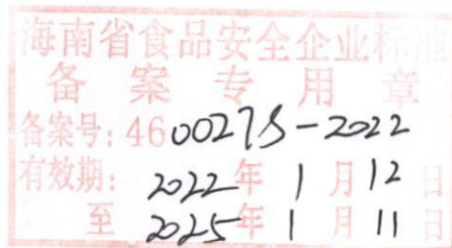 海南省食品安全企业标准
备案专用章
备案号: 460027S-2022
有效期: 2022年1月12日
至 2025年1月11日